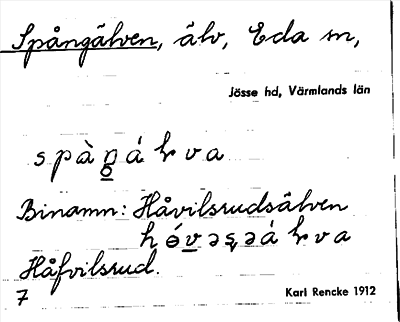 Spångälven, älv, Eda sn,
Jösse hd, Värmlands län
Binamn: Håvilsrudsälven
Håfvilsrud.
7
Karl Rencke 1912